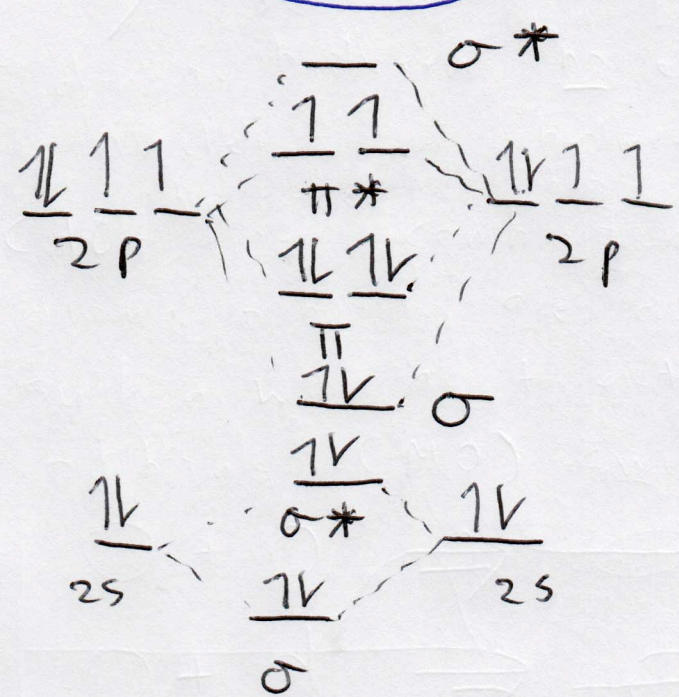 σ *
π *
2p 2p
π
σ
σ *
2s 2s
σ